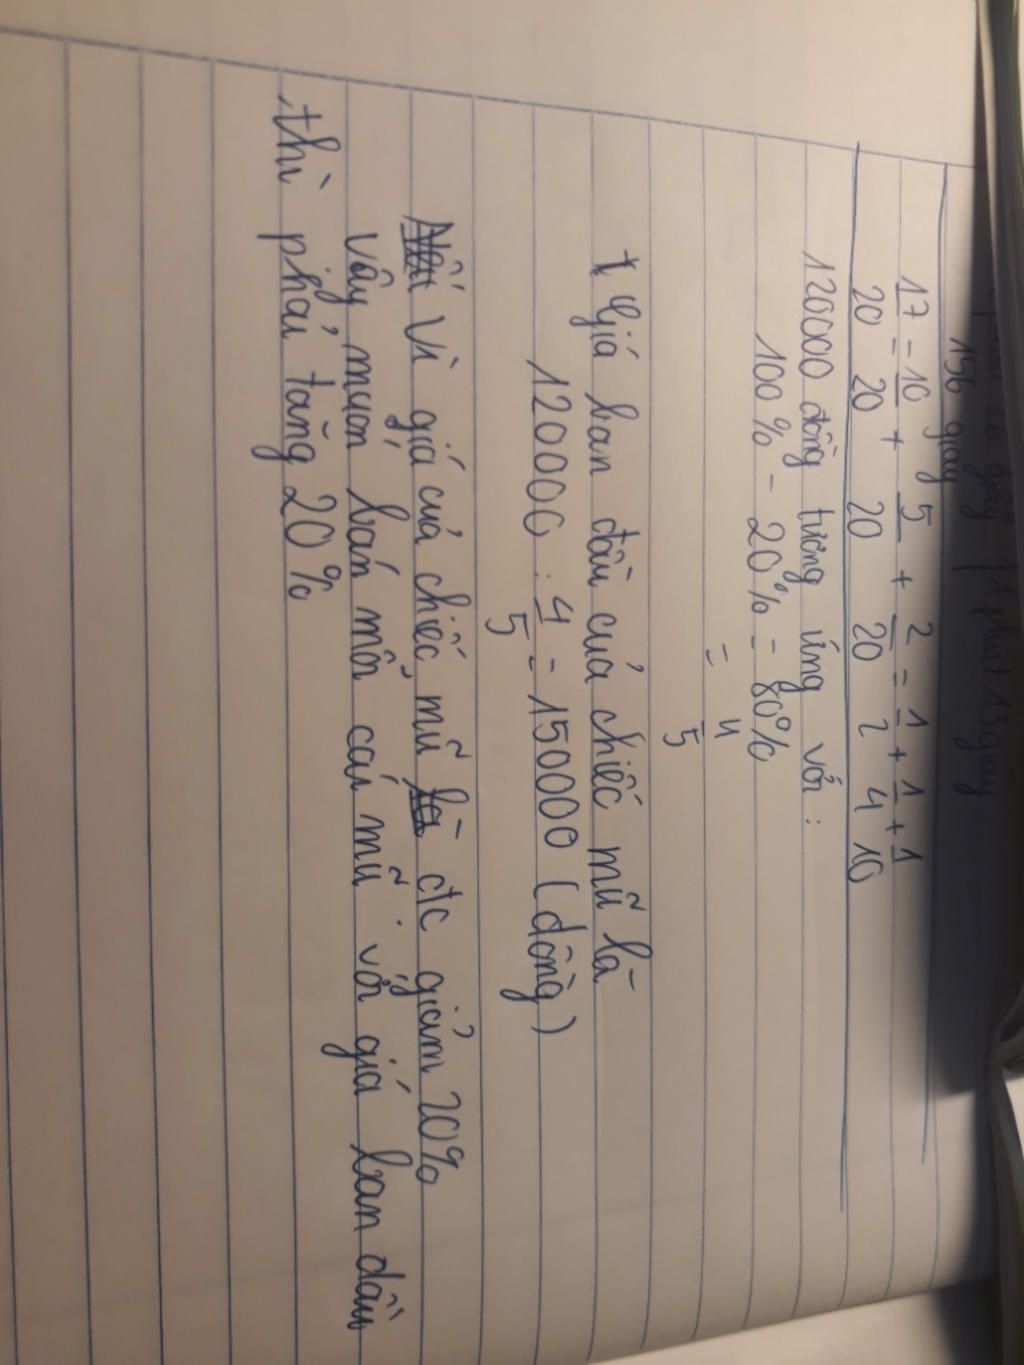 156 giây 1 phút 13 giây
17/20 = 10/20 + 5/20 + 2/20 = 1/2 + 1/4 + 1/10
120000 đồng tương ứng với :
100% - 20% = 80%
= 4/5
+ Giá ban đầu của chiếc mũ là
120000 : 4/5 = 150000 (đồng)
Vì giá của chiếc mũ đc giảm 20%
vậy muốn bán mỗi cái mũ với giá ban đầu
thì phải tăng 20%